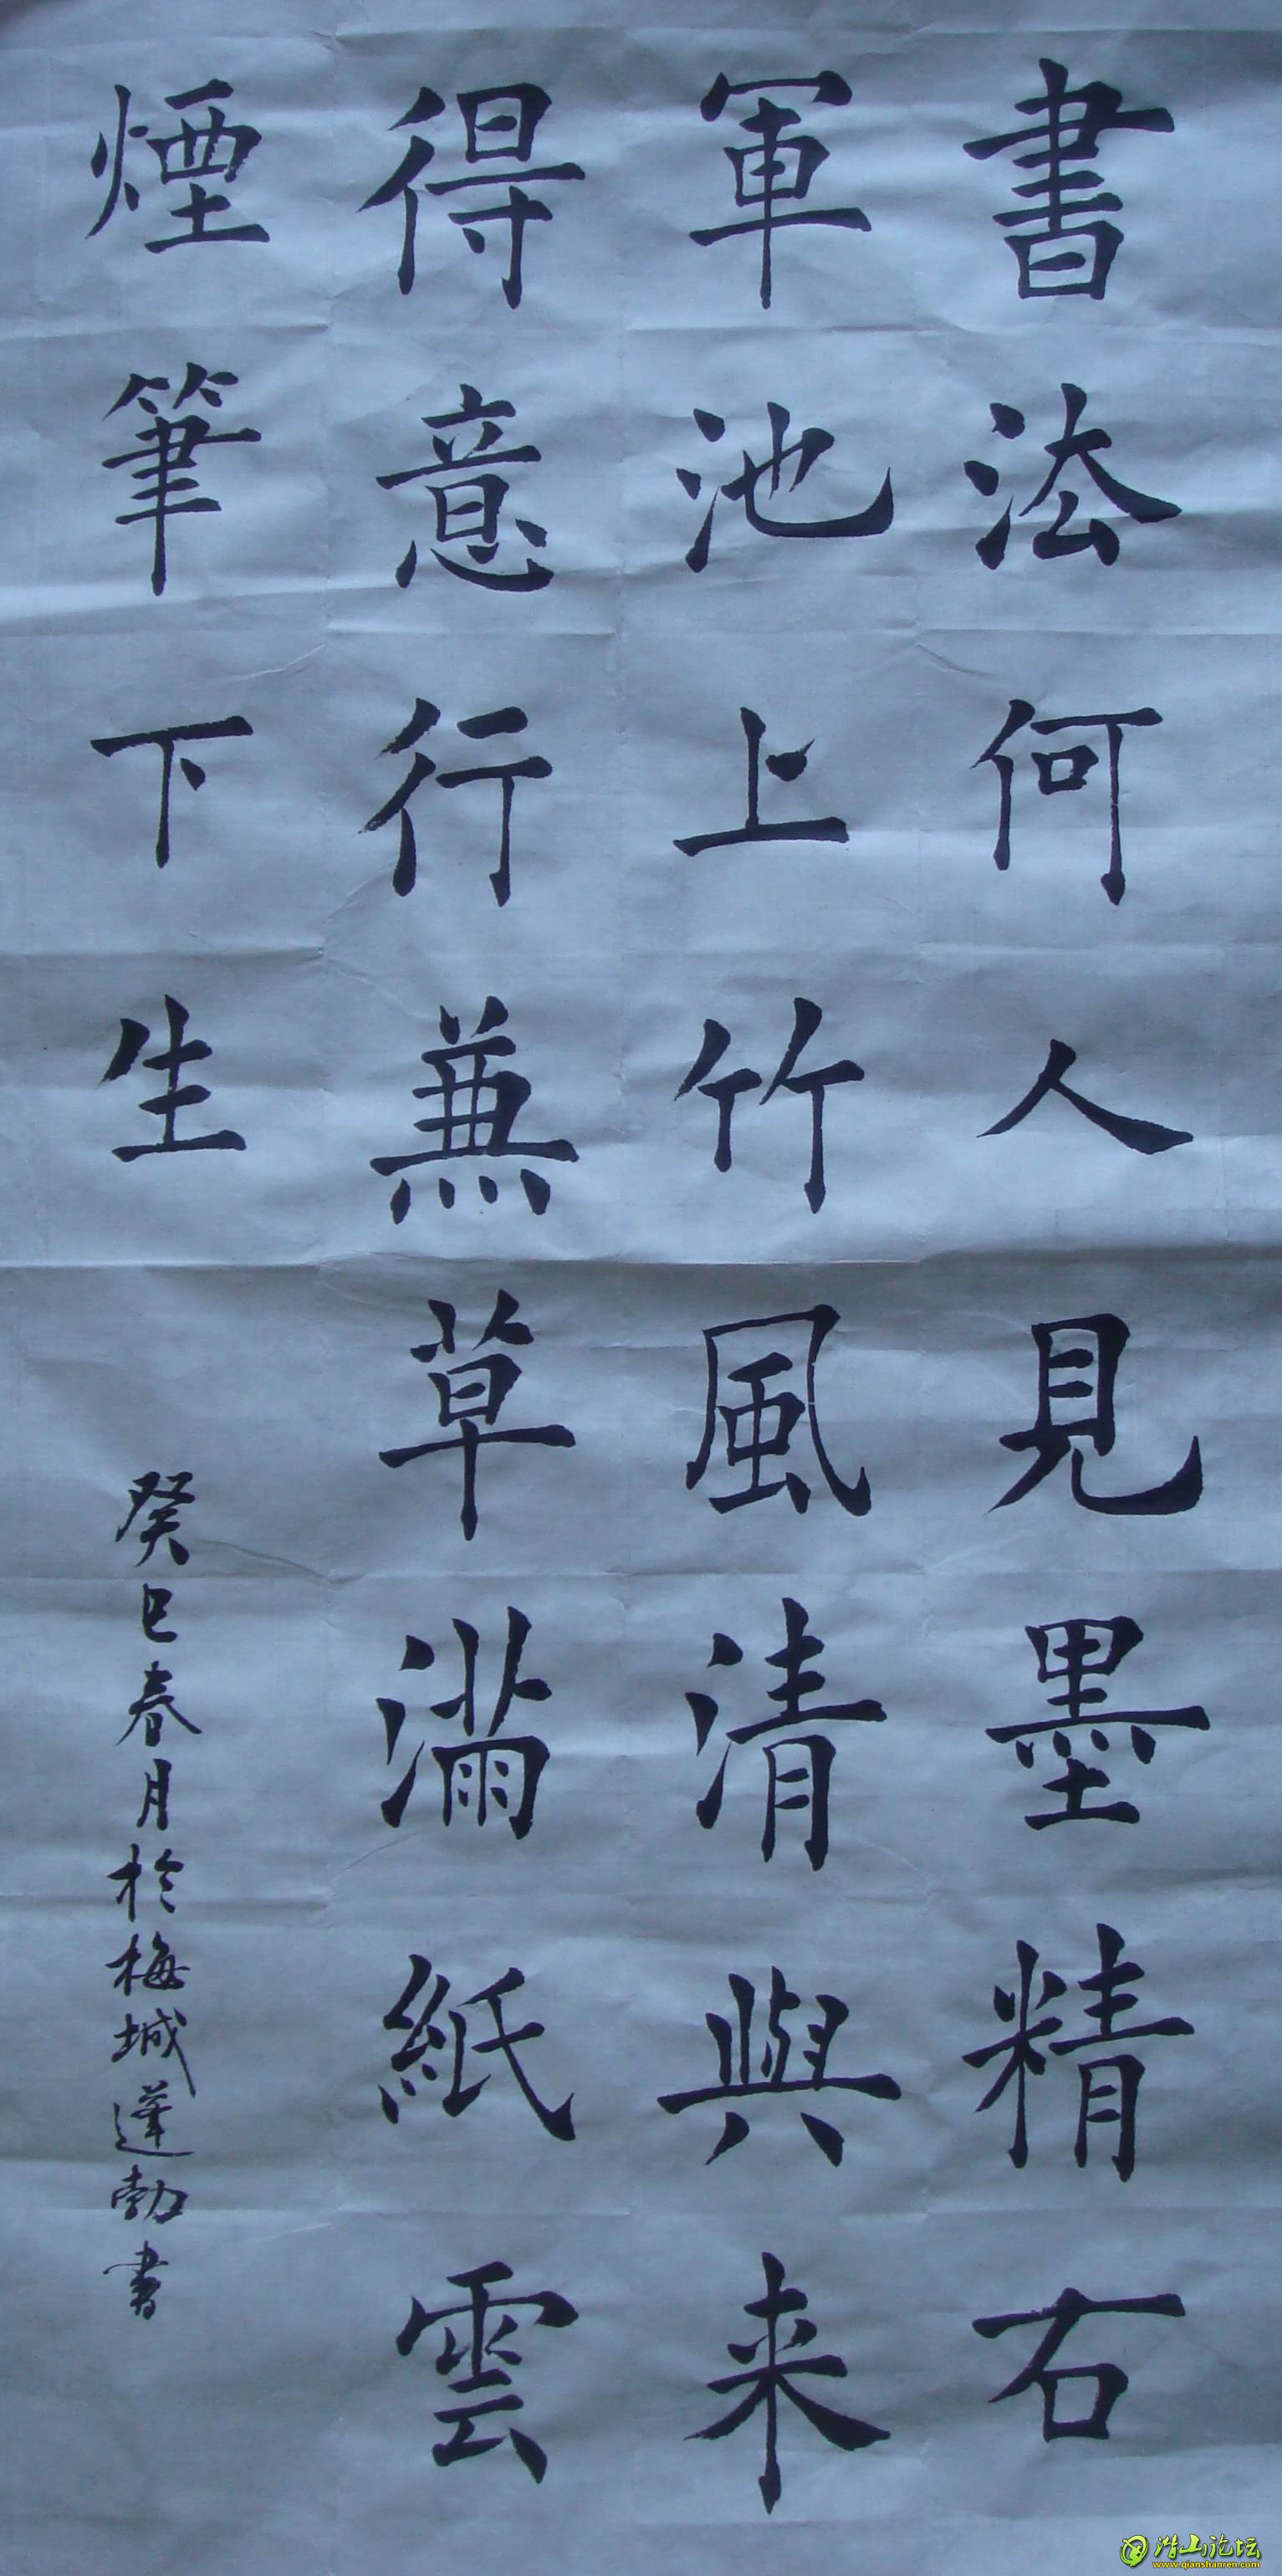 書法何人見墨精右
軍池上竹風清與来
得意行兼草滿紙雲
煙筆下生
癸巳春月於梅城蓬勃書
潜山论坛
www.qianshanren.com